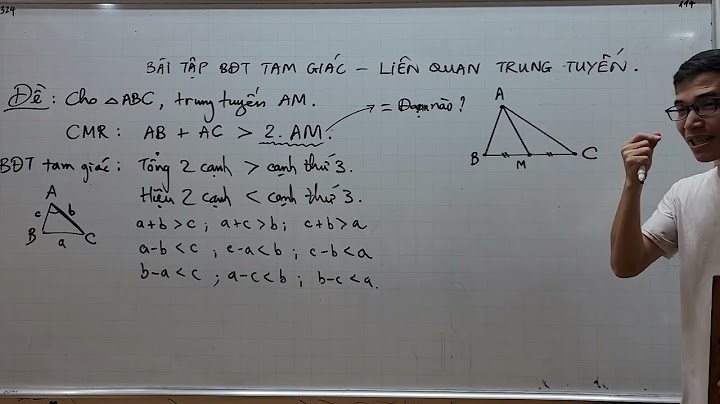 324
114
BÀI TẬP BĐT TAM GIÁC – LIÊN QUAN TRUNG TUYẾN.
Đề : Cho △ABC, trung tuyến AM.
CMR : AB + AC > 2.AM. = Đoạn nào ?
BĐT tam giác : Tổng 2 cạnh > cạnh thứ 3.
Hiệu 2 cạnh < cạnh thứ 3.
a+b > c ; a+c > b ; c+b > a
a-b < c ; c-a < b ; c-b < a
b-a < c ; a-c < b ; b-c < a.
A
c b
B a C
A
B M C